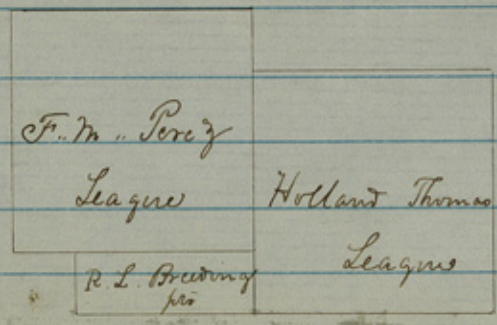 F. M. Perez
League
Holland Thomas
League
R. L. Breeding
pre